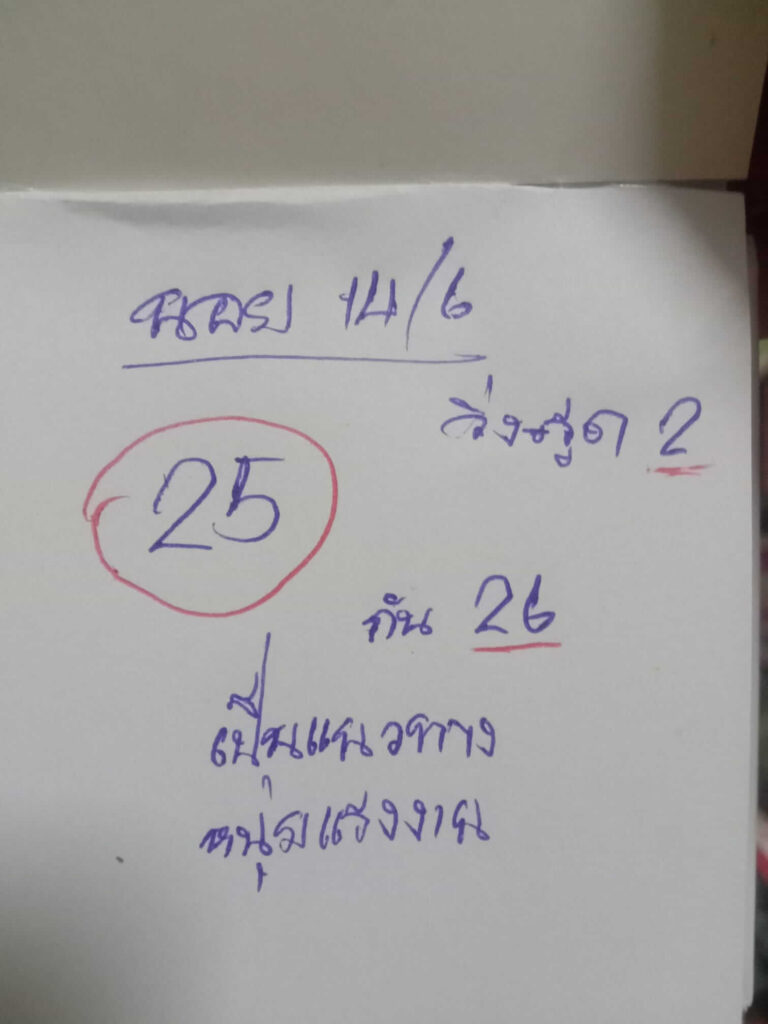 ฮานอย 14/6
วิ่งรูด 2
25
กัน 26
เป็นแนวทาง
หนุ่มแรงงาน